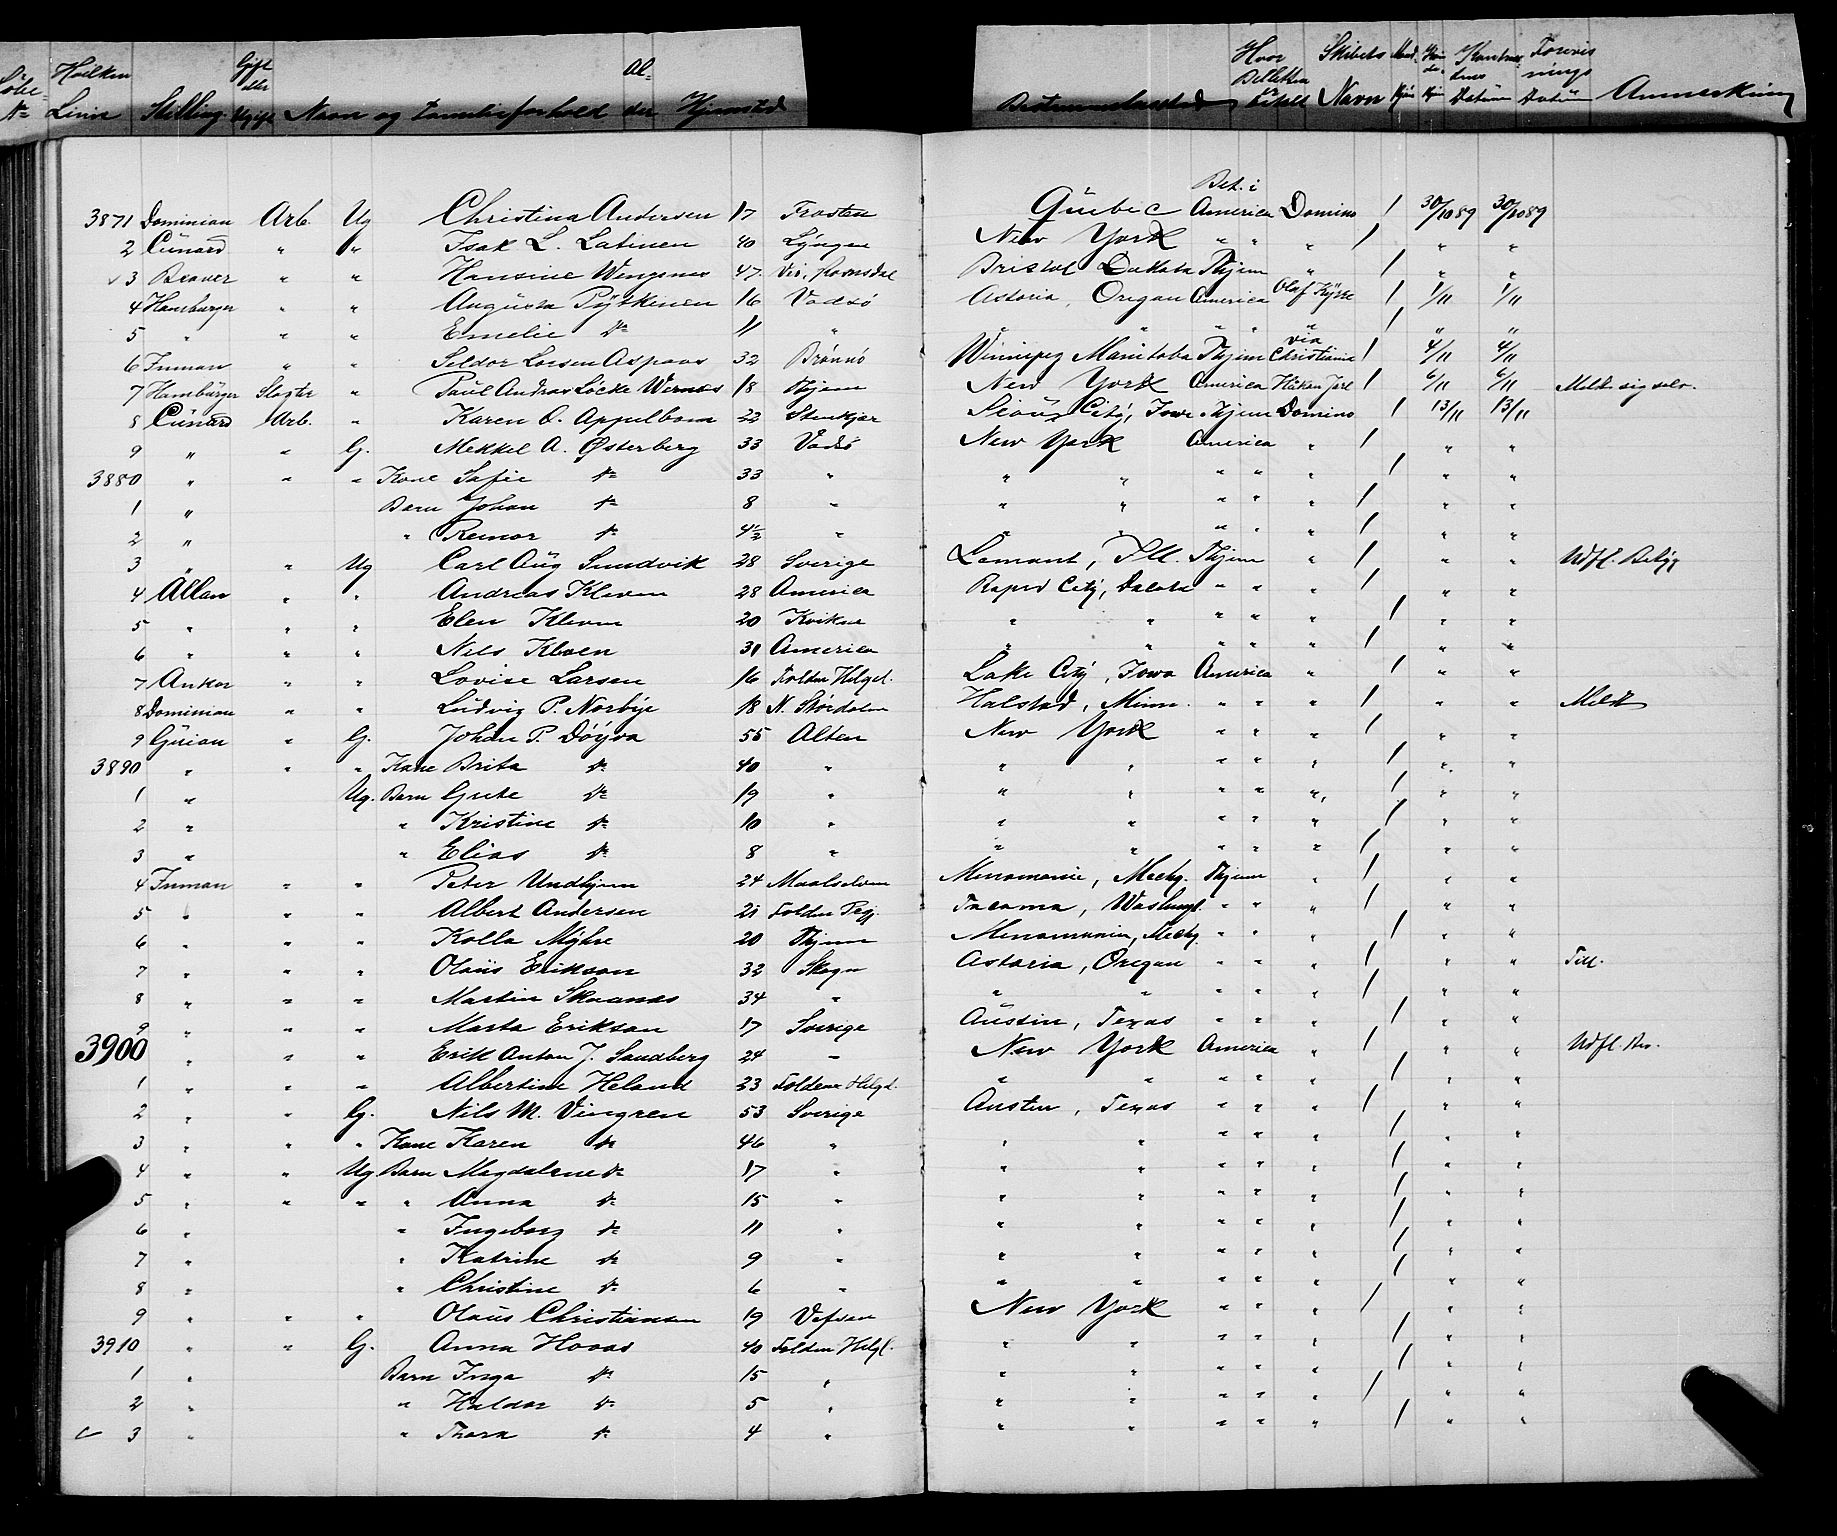 Løbe- Nr. Hvilken Linie Stilling Gift eller Ugift Navn og Familieforhold Alder Hjemsted Bestemmelsessted Hvor Billetten er kjøbt Skibets Navn Mandkjøn Kvindekjøn Datum Datum Anmerkning
Bet. i
3871 Dominion Arb. Ug Christina Andersen 17 Frosten Quebec America Domino / 30/10 89 30/10 89
2 Cunard " " Isak L. Latinen 40 Lyngen New York " " " / " "
3 Beaver " " Hansine Wengsnes 47 Romsdal Bristol Dakota Thjem " / " "
4 Hamburger " " Augusta Pytkinen 16 Vadsö Astoria, Oregon America Olaf Kyrre / 1/11 1/11
5 " " " Emelie do 11 " " " " / " "
6 Inman " " Seldor Larsen Aspaas 32 Brønnö Winnipeg Manitoba Thjem via Christiania / 4/11 4/11
7 Hamburger Slagter " Paul Andreas Löcke Wernes 18 Thjem New York America Haken Jarl / 6/11 6/11 Meldt sig selv.
8 Cunard Arb. " Karen O. Appelbom 22 Stenkjær Sioux City, Iowa Thjem Domino / 13/11 13/11
9 " " G. Mekkel A. Østerberg 33 Vadsö New York America " / " "
3880 " " " Kone Sofie do 33 " " " " " " / " "
1 " Barn Johan do 8 " " " " " " / " "
2 " " Reinor do 4½ " " " " " " / " "
3 " " Ug Carl Aug Sundvik 28 Sverige Lemont, Ill. Thjem " / " " Udfl. Bevis
4 Allan " " Andreas Kleven 28 America Rapid City, Dacota " " " / " "
5 " " " Elen Kleven 20 Kvikne " " " " " / " "
6 " " " Nils Kleven 31 America " " " " " / " "
7 Anker " " Lovise Larsen 16 Folden Helgel. Lake City, Iowa America " / " "
8 Dominion " " Ludvig P. Norbye 18 N. Stördalen Halstad, Minn. " " " / " " Meldt
9 Guion " G. Johan P. Döyva 55 Alten New York " " " / " "
3890 " " " Kone Brita do 40 " " " " " " / " "
1 " Ug. Barn Grete do 19 " " " " " " / " "
2 " " Kristine do 10 " " " " " " / " "
3 " " Elias do 8 " " " " " " / " "
4 Inman " " Peter Undhjem 24 Maalselven Menomonie, Mechg. Thjem " / " "
5 " " " Albert Andersen 21 Folden Tacoma, Washingt. " " " / " "
6 " " " Kolla Myhre 20 Thjem Menomonie, Mechg. " " " / " "
7 " " " Olaus Erikson 32 Skogn Astoria, Oregon " " " / " " Till.
8 " " " Martin Skaanes 34 " " " " " " / " "
9 " " " Marta Erikson 17 Sverige Austin, Texas " " " / " "
3900 " " " Erik Anton J. Sandberg 24 " New York America " / " " Udfl. Bev.
1 " " " Albertine Heland 23 Foldene Helgd. " " " " " / " "
2 " " G. Nils M. Vingren 53 Sverige Austin, Texas " " " / " "
3 " " " Kone Karen do 46 " " " " " " / " "
4 " " Ug Barn Magdalene do 17 " " " " " " / " "
5 " " " " Anna do 15 " " " " " " / " "
6 " " Ingeborg do 11 " " " " " " / " "
7 " " Katrine do 9 " " " " " " / " "
8 " " Christine do 6 " " " " " " / " "
9 " " " Olaus Christiansen 19 Vefsen New York " " " / " "
3910 " " G. Anna Hovas 40 Folden Helgl. " " " " " / " "
1 " Barn Inga do 15 " " " " " " / " "
2 " " Haldor do 5 " " " " " " / " "
3 " " Thora do 4 " " " " " " / " "